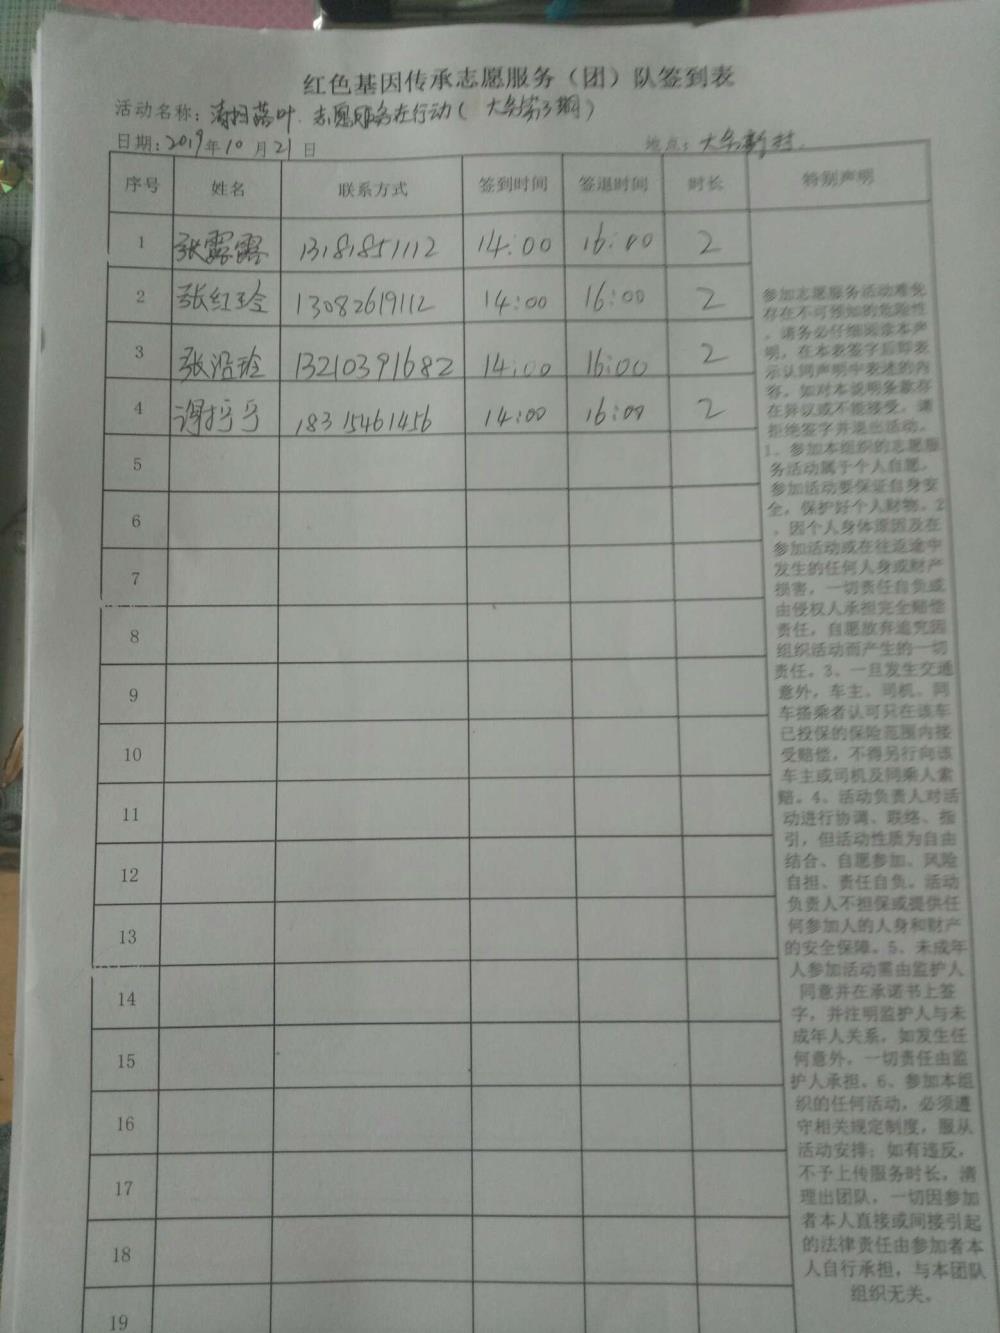 红色基因传承志愿服务（团）队签到表
活动名称：清扫落叶.志愿服务在行动（大务第3期）
日期：2019年10月21日 地点：大务新村.
序号 姓名 联系方式 签到时间 签退时间 时长 特别声明
1 张露露 13181851112 14:00 16:00 2
2 张红玲 13082619112 14:00 16:00 2
3 张沿玲 13210391682 14:00 16:00 2
4 谢 18315461456 14:00 16:00 2
5
6
7
8
9
10
11
12
13
14
15
16
17
18
19
参加志愿服务活动难免
存在不可预知的危险性
，请务必仔细阅读本声
明，在本表签字后即表
示认同声明中表述的内
容。如对本说明条款存
在异议或不能接受，请
拒绝签字并退出活动。
1、参加本组织的志愿服
务活动属于个人自愿。
参加活动要保证自身安
全，保护好个人财物。2
、因个人身体原因及在
参加活动或在往返途中
发生的任何人身或财产
损害，一切责任自负或
由侵权人承担完全赔偿
责任，自愿放弃追究因
组织活动而产生的一切
责任。3、一旦发生交通
意外，车主、司机、同
车搭乘者认可只在该车
已投保的保险范围内接
受赔偿，不得另行向该
车主或司机及同乘人索
赔。4、活动负责人对活
动进行协调、联络、指
引，但活动性质为自由
结合、自愿参加、风险
自担、责任自负。活动
负责人不担保或提供任
何参加人的人身和财产
的安全保障。5、未成年
人参加活动需由监护人
同意并在承诺书上签
字，并注明监护人与未
成年人关系，如发生任
何意外，一切责任由监
护人承担。6、参加本组
织的任何活动，必须遵
守相关规定制度，服从
活动安排；如有违反，
不予上传服务时长，清
理出团队，一切因参加
者本人直接或间接引起
的法律责任由参加者本
人自行承担，与本团队
组织无关。